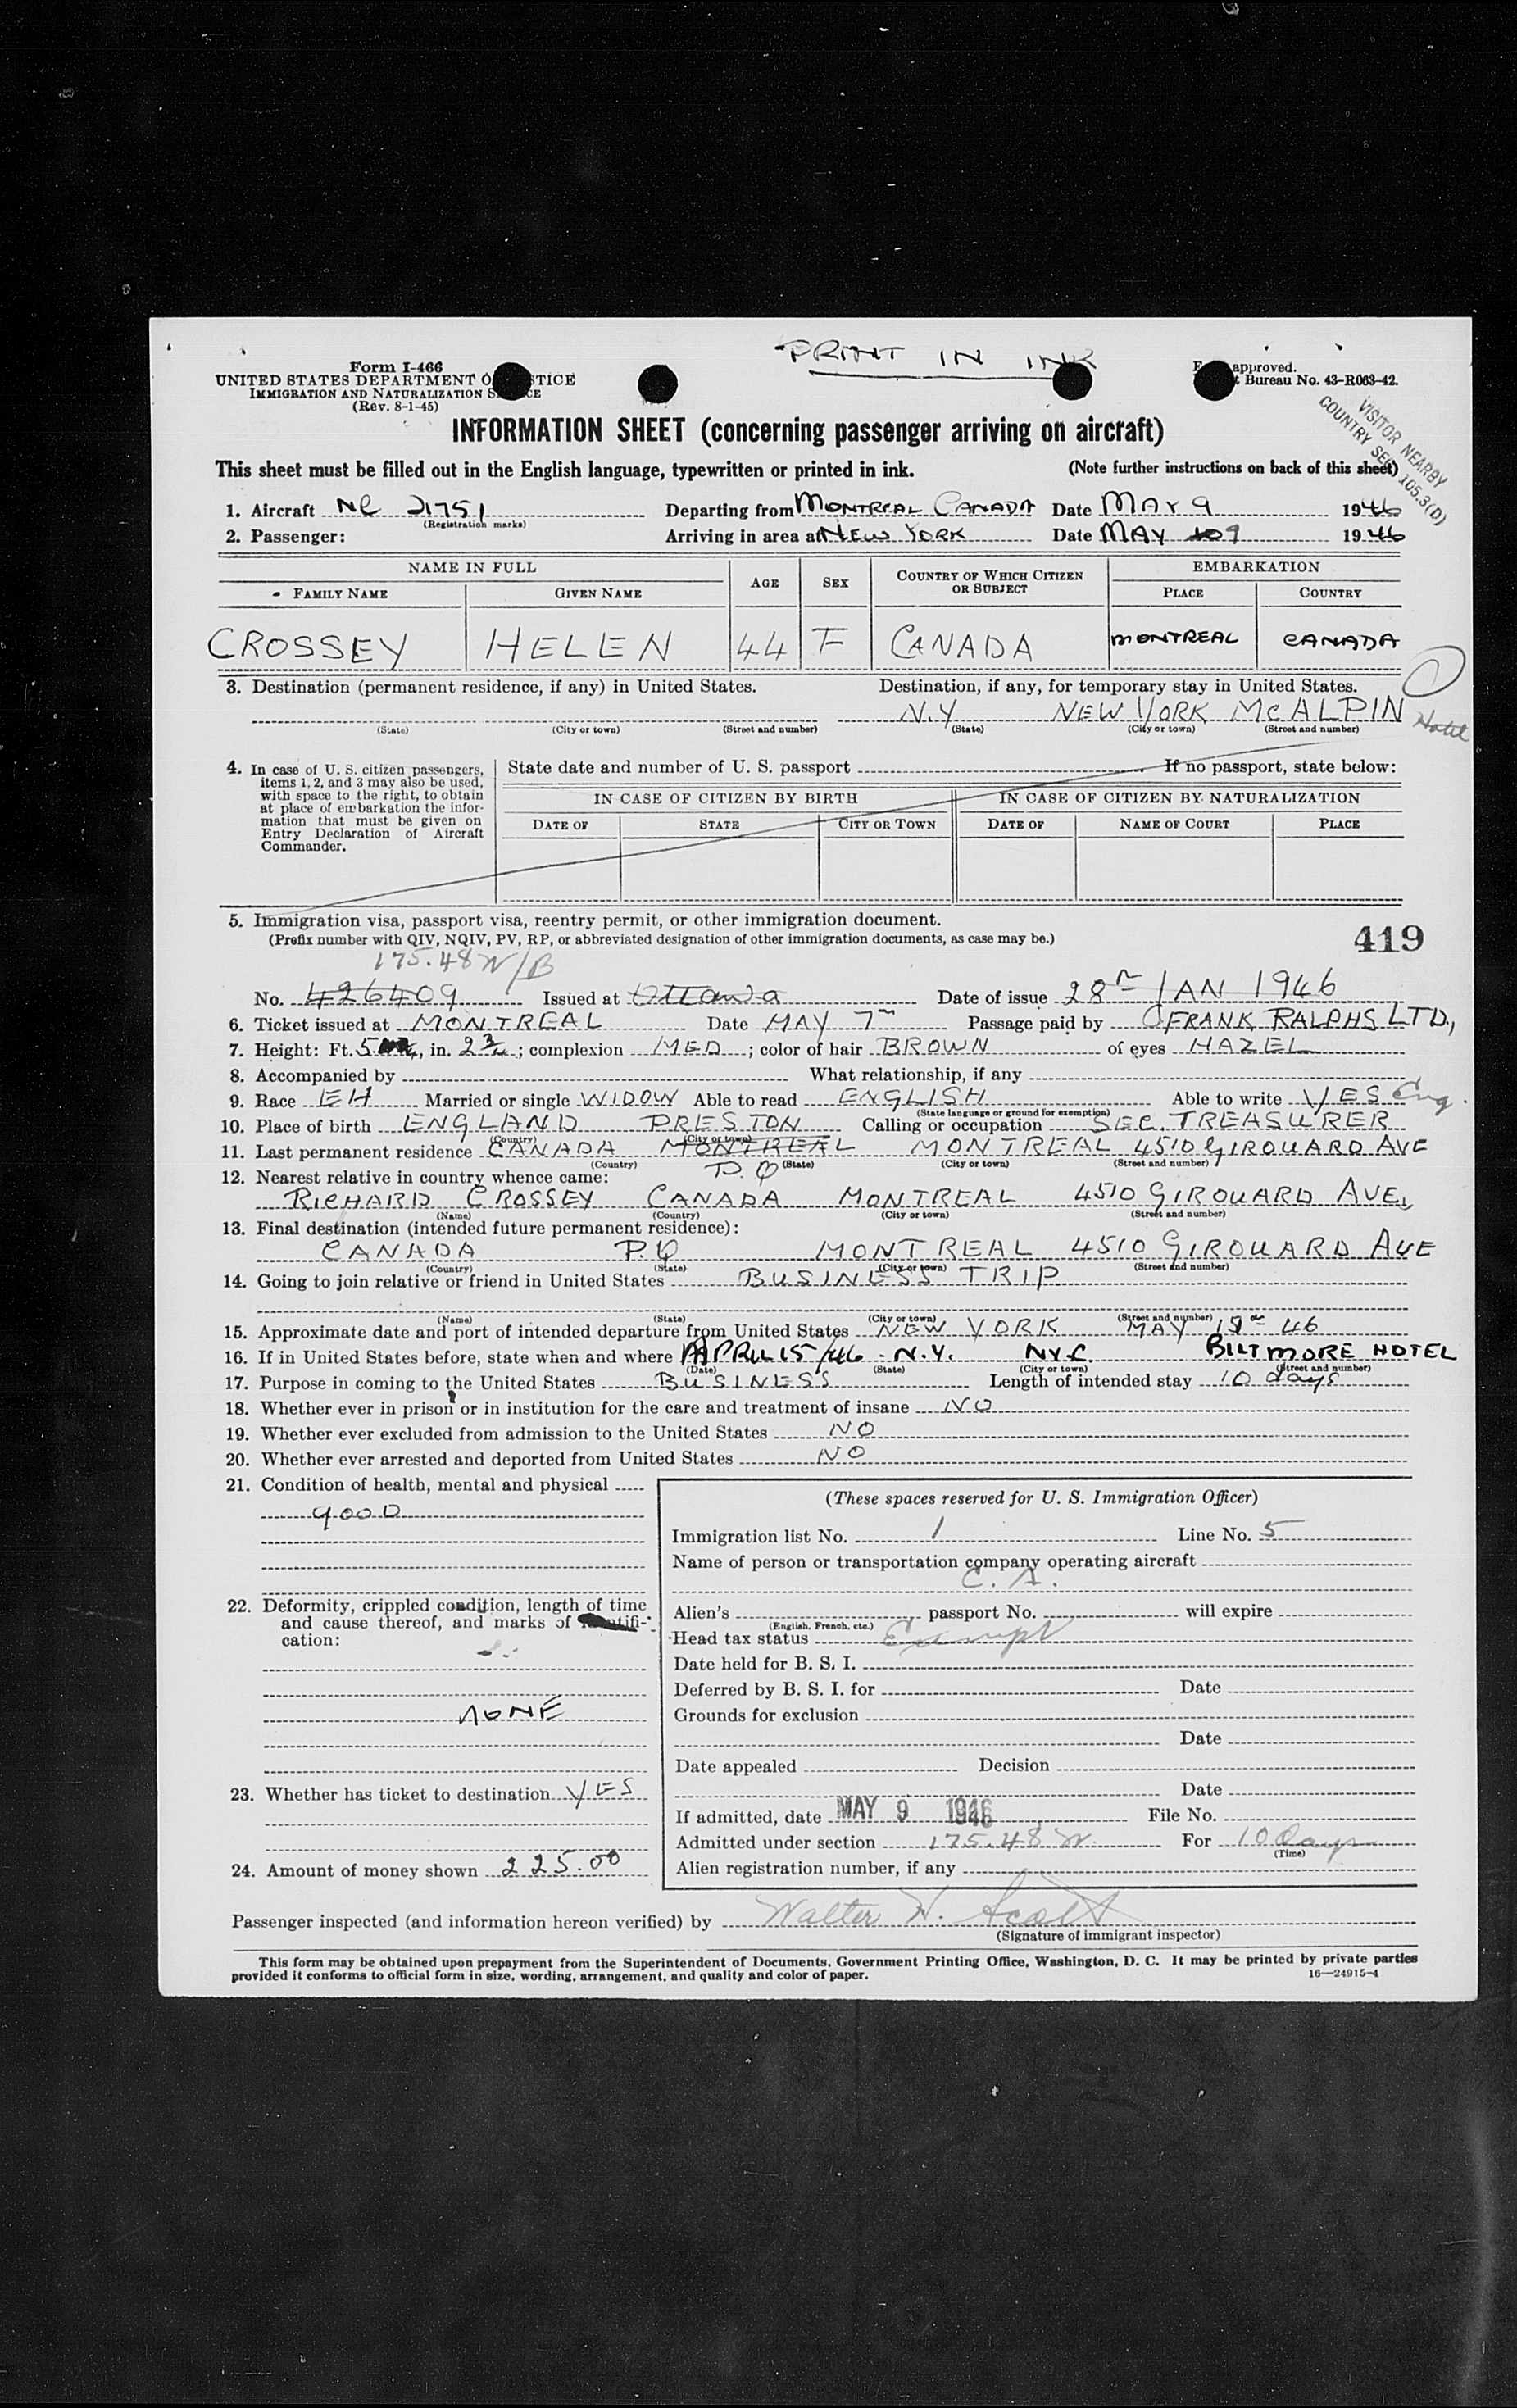 PRINT IN INK
Form I-466
UNITED STATES DEPARTMENT O STICE
IMMIGRATION AND NATURALIZATION S CE
(Rev. 8-1-45)
F approved.
t Bureau No. 43-R063-42.
VISITOR NEARBY
COUNTRY SEC. 105.3(D)
INFORMATION SHEET (concerning passenger arriving on aircraft)
This sheet must be filled out in the English language, typewritten or printed in ink. (Note further instructions on back of this sheet)
1. Aircraft NC 21751 Departing from MONTREAL CANADA Date MAY 9 1946
(Registration marks)
2. Passenger: Arriving in area at NEW YORK Date MAY 9 1946
NAME IN FULL AGE SEX COUNTRY OF WHICH CITIZEN OR SUBJECT EMBARKATION
FAMILY NAME GIVEN NAME PLACE COUNTRY
CROSSEY HELEN 44 F CANADA MONTREAL CANADA
3. Destination (permanent residence, if any) in United States. Destination, if any, for temporary stay in United States.
N.Y NEW YORK McALPIN Hotel
(State) (City or town) (Street and number) (State) (City or town) (Street and number)
4. In case of U. S. citizen passengers, items 1, 2, and 3 may also be used, with space to the right, to obtain at place of embarkation the information that must be given on Entry Declaration of Aircraft Commander.
State date and number of U. S. passport If no passport, state below:
IN CASE OF CITIZEN BY BIRTH IN CASE OF CITIZEN BY NATURALIZATION
DATE OF STATE CITY OR TOWN DATE OF NAME OF COURT PLACE
5. Immigration visa, passport visa, reentry permit, or other immigration document.
(Prefix number with QIV, NQIV, PV, RP, or abbreviated designation of other immigration documents, as case may be.)
419
175.48 W/B
No. 426409 Issued at Ottawa Date of issue 28 JAN 1946
6. Ticket issued at MONTREAL Date MAY 7 Passage paid by FRANK RALPHS LTD,
7. Height: Ft. 5, in. 2 3/4; complexion MED; color of hair BROWN of eyes HAZEL
8. Accompanied by What relationship, if any
9. Race EH Married or single WIDOW Able to read ENGLISH Able to write YES Eng.
(State language or ground for exemption)
10. Place of birth ENGLAND PRESTON Calling or occupation SEC. TREASURER
(Country) (City or town)
11. Last permanent residence CANADA MONTREAL MONTREAL 4510 GIROUARD AVE
P.Q
(Country) (State) (City or town) (Street and number)
12. Nearest relative in country whence came:
RICHARD CROSSEY CANADA MONTREAL 4510 GIROUARD AVE,
(Name) (Country) (City or town) (Street and number)
13. Final destination (intended future permanent residence):
CANADA P.Q MONTREAL 4510 GIROUARD AVE
(Country) (State) (City or town) (Street and number)
14. Going to join relative or friend in United States BUSINESS TRIP
(Name) (State) (City or town) (Street and number)
15. Approximate date and port of intended departure from United States NEW YORK MAY 46
16. If in United States before, state when and where APRIL 15/46 N.Y. NYC. BILTMORE HOTEL
(Date) (State) (City or town) (Street and number)
17. Purpose in coming to the United States BUSINESS Length of intended stay 10 days
18. Whether ever in prison or in institution for the care and treatment of insane NO
19. Whether ever excluded from admission to the United States NO
20. Whether ever arrested and deported from United States NO
21. Condition of health, mental and physical
GOOD
22. Deformity, crippled condition, length of time
and cause thereof, and marks of identifi-
cation:
NONE
23. Whether has ticket to destination YES
24. Amount of money shown 225.00
(These spaces reserved for U. S. Immigration Officer)
Immigration list No. 1 Line No. 5
Name of person or transportation company operating aircraft
C. A.
Alien's passport No. will expire
(English, French, etc.)
Head tax status Exempt
Date held for B. S. I.
Deferred by B. S. I. for Date
Grounds for exclusion
Date
Date appealed Decision
Date
If admitted, date MAY 9 1946 File No.
Admitted under section 175.48 W. For 10 Days
(Time)
Alien registration number, if any
Passenger inspected (and information hereon verified) by Walter W. Scott
(Signature of immigrant inspector)
This form may be obtained upon prepayment from the Superintendent of Documents, Government Printing Office, Washington, D. C. It may be printed by private parties
provided it conforms to official form in size, wording, arrangement, and quality and color of paper. 16—24915-4